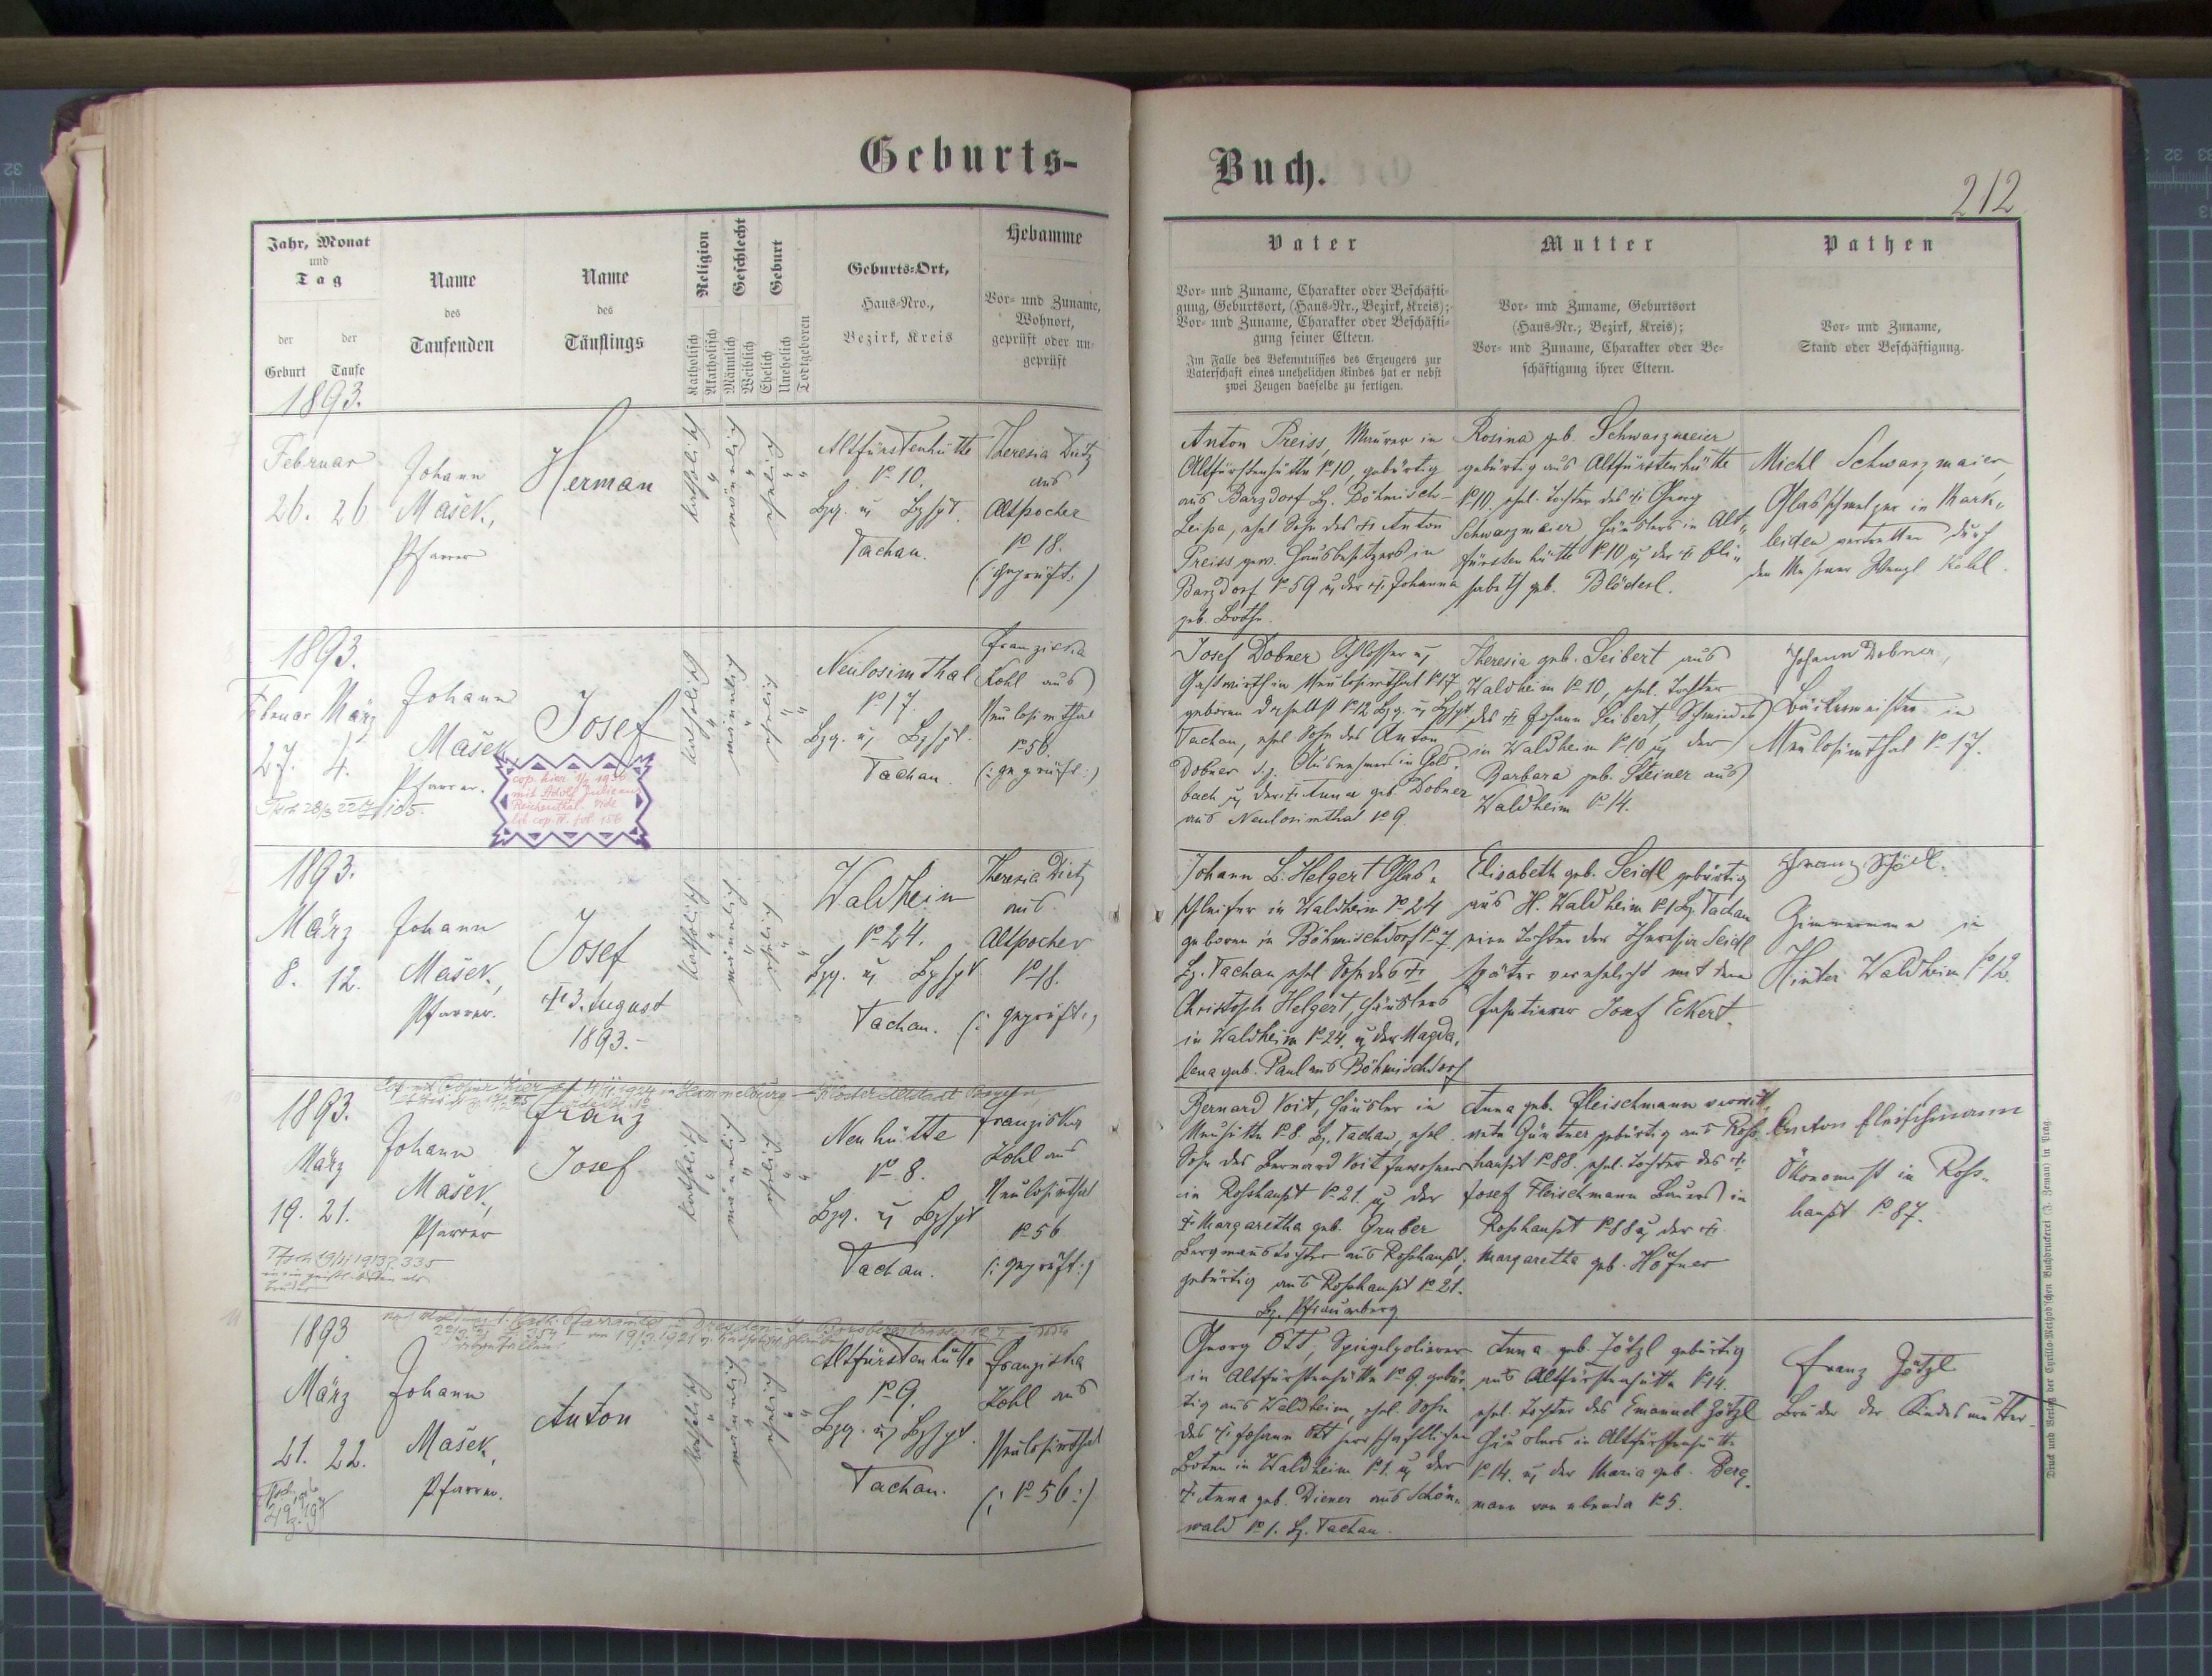 Geburts-
Buch.
212
Jahr, Monat
und
Tag
der
Geburt
der
Taufe
Name
des
Taufenden
Name
des
Täuflings
Religion
Katholisch
Akatholisch
Geschlecht
Männlich
Weiblich
Geburt
Ehelich
Unehelich
Todtgeboren
Geburts-Ort,
Haus-Nro.,
Bezirk, Kreis
Hebamme
Vor- und Zuname,
Wohnort,
geprüft oder un-
geprüft
Vater
Vor- und Zuname, Charakter oder Beschäfti-
gung, Geburtsort, (Haus-Nr., Bezirk, Kreis);
Vor- und Zuname, Charakter oder Beschäfti-
gung seiner Eltern.
Im Falle des Bekenntnisses des Erzeugers zur
Vaterschaft eines unehelichen Kindes hat er nebst
zwei Zeugen dasselbe zu fertigen.
Mutter
Vor- und Zuname, Geburtsort
(Haus-Nr.; Bezirk, Kreis);
Vor- und Zuname, Charakter oder Be-
schäftigung ihrer Eltern.
Pathen
Vor- und Zuname,
Stand oder Beschäftigung.
1893.
Februar
26. 26
Johann
Mašek,
Pfarrer
Herman
katholisch
männlich
ehelich
Altfürstenhütte
No 10.
Bzg. u. Bzhpt.
Tachau.
Theresia Dietz
aus
Altpocher
No 18.
(: geprüft :)
Anton Preiss, Maurer in
Altfürstenhütte No 10, gebürtig
aus Barzdorf Bz. Böhmisch-
Leipa, ehel. Sohn des † Anton
Preiss gew. Hausbesitzers in
Barzdorf No 59 u. der † Johanna
geb. Bothe.
Rosina geb. Schwarzmeier
gebürtig aus Altfürstenhütte
No 10. ehel. Tochter des † Georg
Schwarzmaier Häuslers in Alt-
fürstenhütte No 10 u. der † Eli-
sabeth geb. Blöderl.
Michl Schwarzmaier,
Glasschmelzer in Mark-
leiden vertretten durch
den Messner Wenzl Köhl.
1893.
Februar März
27. 4.
Johann
Mašek
Pfarrer.
Josef
cop. hier
mit Adolf Julie aus
Reichenthal vide
lib. cop. IV. fol. 156
katholisch
männlich
ehelich
Neulosimthal
No 17.
Bzg. u. Bzhpt.
Tachau.
Franziska
Kohl aus
Neulosimthal
No 56.
(: geprüft :)
Josef Dobner Schlosser u.
Gastwirth in Neulosimthal No 17
geboren daselbst No 12 Bzg. u. Bzhpt
Tachau, ehel. Sohn des Anton
Dobner d. j. Ausnehmers in Gold-
bach u. der † Anna geb. Dobner
aus Neulosimthal No 9.
Theresia geb. Seibert aus
Waldheim No 10, ehel. Tochter
des † Johann Seibert, Schmiedes
in Waldheim No 10 u. der
Barbara geb. Steiner aus
Waldheim No 14.
Johann Dobner,
Bäckermeister in
Neulosimthal No 17.
1893.
März
8. 12.
Johann
Mašek,
Pfarrer.
Josef
† 3. August
1893.-
katholisch
männlich
ehelich
Waldheim
No 24.
Bzg. u. Bzhpt
Tachau.
Theresia Dietz
aus
Altpocher
No 18.
(: geprüft :)
Johann B. Helgert Glas-
schleifer in Waldheim No 24
geboren in Böhmischdorf No 7,
Bz. Tachau ehel. Sohn des †
Christoph Helgert, Häuslers
in Waldheim No 24. u. der Magda-
lena geb. Paul aus Böhmischdorf
Elisabeth geb. Seidl gebürtig
aus H. Waldheim No 1 Bz. Tachau
eine Tochter der Theresia Seidl
später verehelicht mit dem
Josef Eckert.
Franz Schödl.
Zimmermann in
Hinter Waldheim No 12.
1893.
März
19. 21.
Johann
Mašek,
Pfarrer
Franz
Josef
katholisch
männlich
ehelich
Neuhütte
No 8.
Bzg. u. Bzhpt
Tachau.
Franziska
Kohl aus
Neulosimthal
No 56
(: geprüft :)
Bernard Voit, Häusler in
Neuhütte No 8. Bz. Tachau, ehel.
Sohn des Bernard Voit Inwohners
in Rosshaupt No 21. u. der
† Margaretha geb. Gruber
Bergmannstochter aus Rosshaupt,
gebürtig aus Rosshaupt No 21.
Bz. Pfraumberg
Anna geb. Fleischmann verwitt-
wete Güntner gebürtig aus Ross-
haupt No 88. ehel. Tochter des †
Josef Fleischmann Bauers in
Rosshaupt No 88 u. der †
Margaretha geb. Höfner
Anton Fleischmann
Ökonomist in Ross-
haupt No 87.
1893
März
21. 22.
Johann
Mašek,
Pfarrer.
Anton
katholisch
männlich
ehelich
Altfürstenhütte
No 9.
Bzg. u. Bzhpt.
Tachau.
Franziska
Kohl aus
Neulosimthal
(: No 56 :)
Georg Ott, Spiegelpolierer
in Altfürstenhütte No 9. gebür-
tig aus Waldheim, ehel. Sohn
des † Johann Ott herrschaftlichen
Boten in Waldheim No 1. u. der
† Anna geb. Diener aus Schön-
wald No 1. Bz. Tachau.
Anna geb. Zötzl gebürtig
aus Altfürstenhütte No 14.
ehel. Tochter des Emanuel Zötzl
Häuslers in Altfürstenhütte
No 14. u. der Maria geb. Berg-
mann von ebenda No 5.
Franz Zötzl
Bruder der Kindesmutter.
Druck und Verlag der Cyrillo-Method'schen Buchdruckerei (J. Zeman) in Prag.